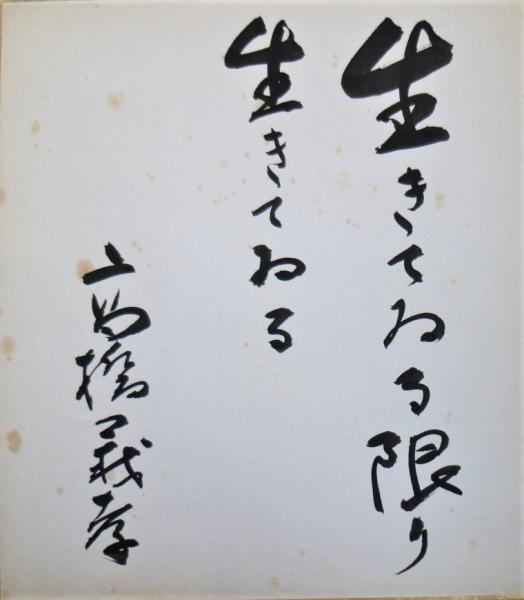 生きてゐる限り
生きてゐる
高橋義孝